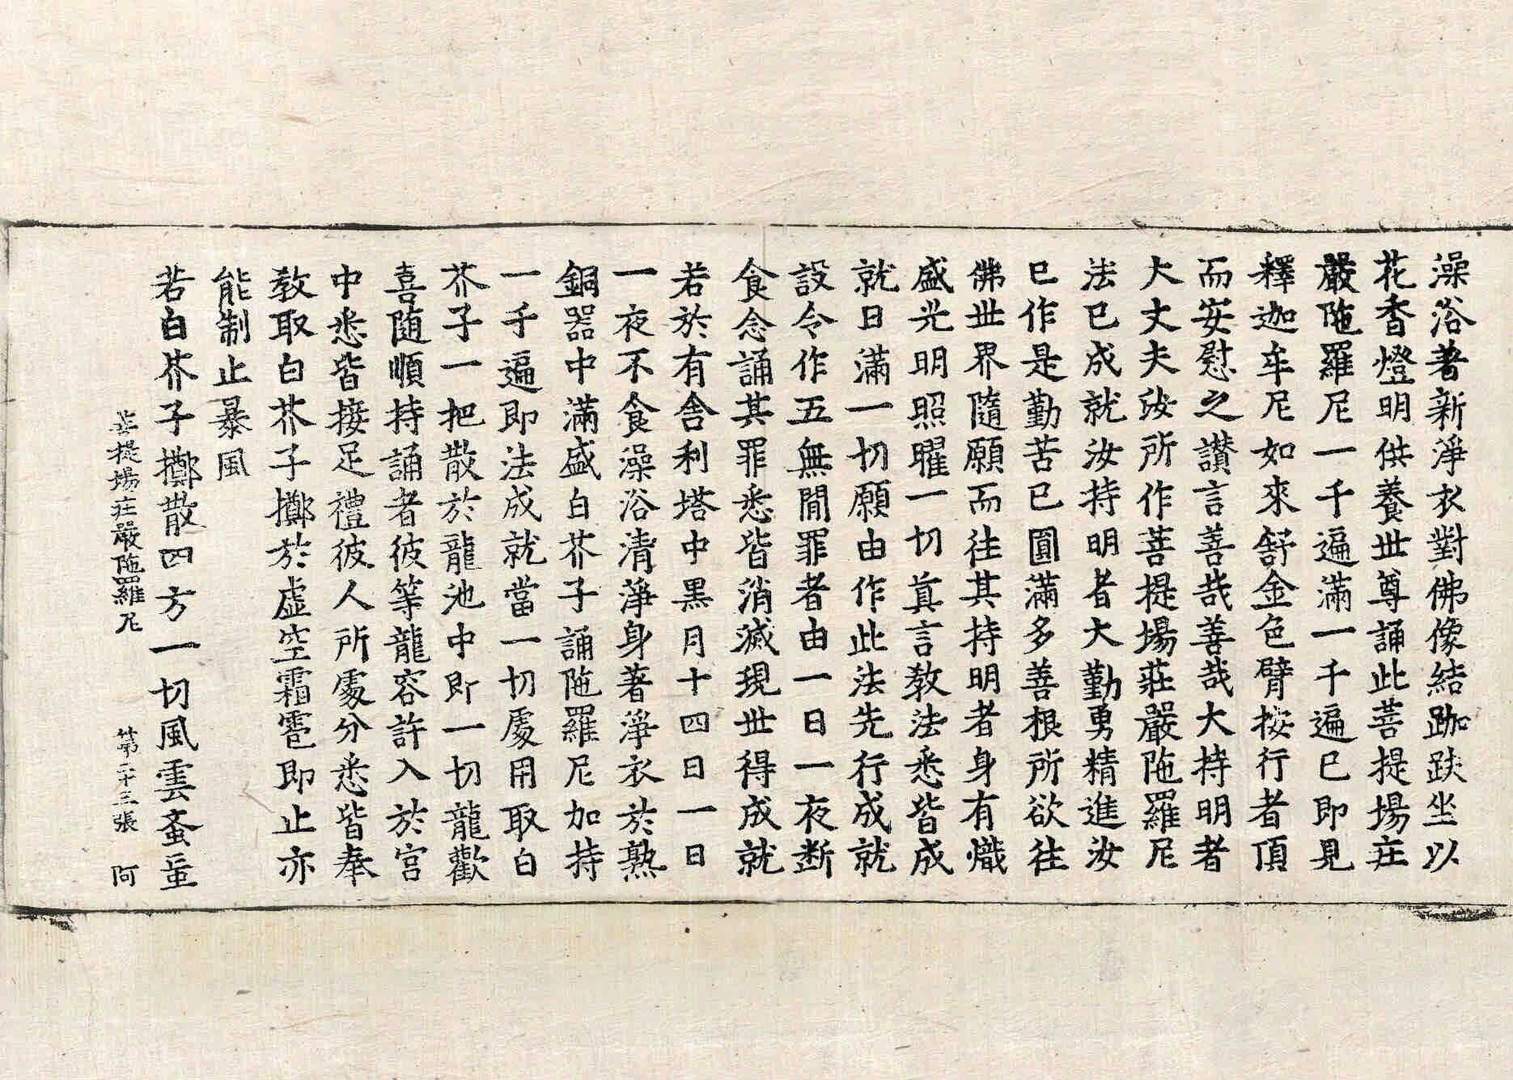 澡浴著新淨衣對佛像結跏趺坐以
花香燈明供養世尊誦此菩提場庄
嚴陁羅尼一千遍滿一千遍已即見
釋迦牟尼如來舒金色臂按行者頂
而安慰之讃言善哉善哉大持明者
大丈夫汝所作菩提場莊嚴陁羅尼
法已成就汝持明者大勤勇精進汝
已作是勤苦已圓滿多善根所欲往
佛世界隨願而往其持明者身有熾
盛光明照曜一切真言教法悉皆成
就日滿一切願由作此法先行成就
設令作五無間罪者由一日一夜断
食念誦其罪悉皆消滅現世得成就
若於有舍利塔中黑月十四日一日
一夜不食澡浴清淨身著淨衣於熟
銅器中滿盛白芥子誦陁羅尼加持
一千遍即法成就當一切處用取白
芥子一把散於龍池中即一切龍歡
喜随順持誦者彼等龍容許入於宮
中悉皆接足禮彼人所處分悉皆奉
教取白芥子擲於虛空霜雹即止亦
能制止暴風
若白芥子擲散四方一切風雲蚉䖟
菩提場庄嚴陁羅尼 第二十三張 阿